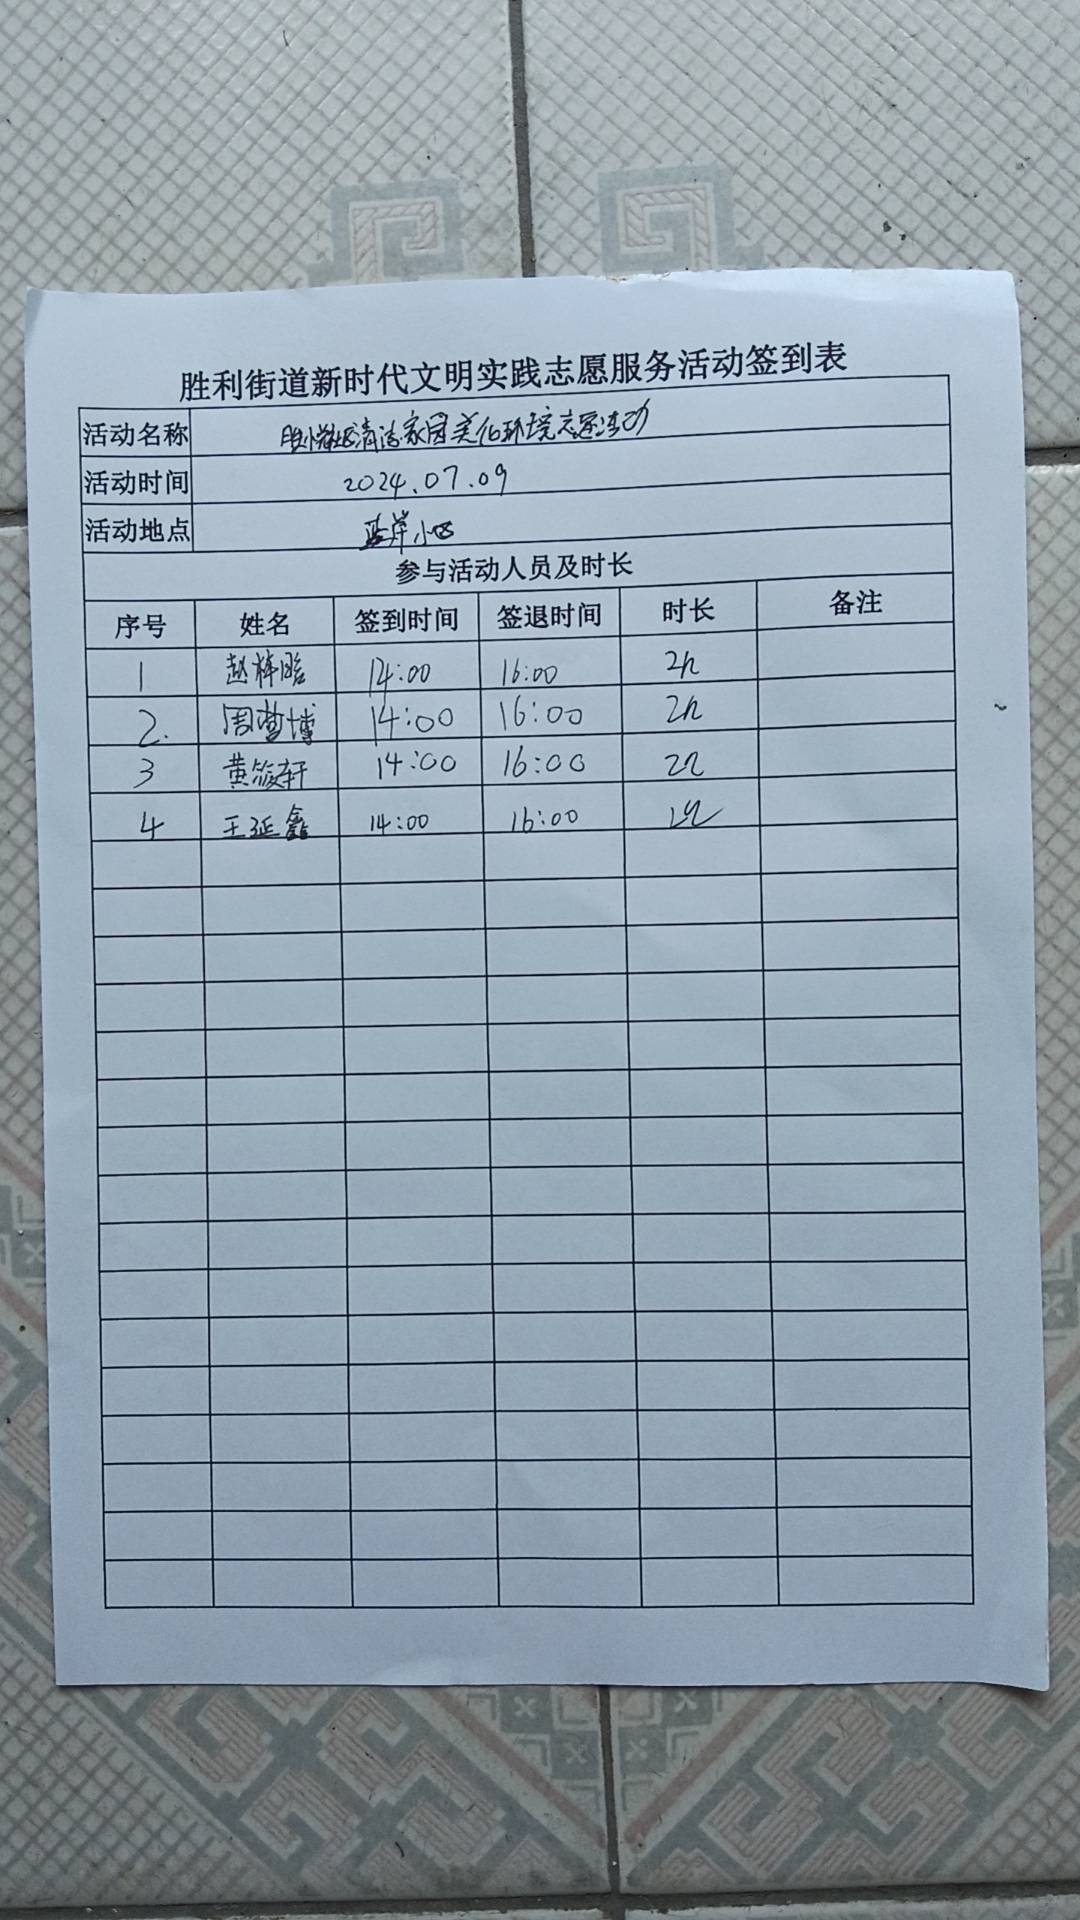 胜利街道新时代文明实践志愿服务活动签到表
活动名称 清洁家园美化环境志愿活动
活动时间 2024.07.09
活动地点 蓝岸小区
参与活动人员及时长
序号 姓名 签到时间 签退时间 时长 备注
1 赵梓晗 14:00 16:00 2h
2. 周 博 14:00 16:00 2h
3 黄筱轩 14:00 16:00 2h
4 王延鑫 14:00 16:00 2h